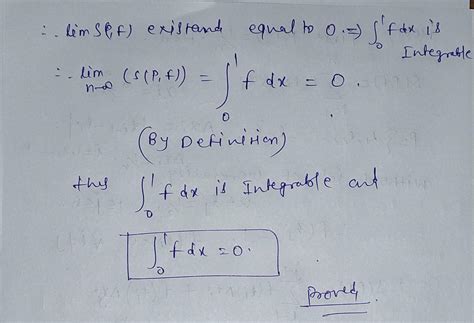 ∴ lim S(P,f) exist and equal to 0. ⇒ ∫₀¹ f dx is
Integrable
∴ lim n→∞ (S(P,f)) = ∫₀¹ f dx = 0.
(By Definition)
thus ∫₀¹ f dx is Integrable and
∫₀¹ f dx = 0.
Proved.